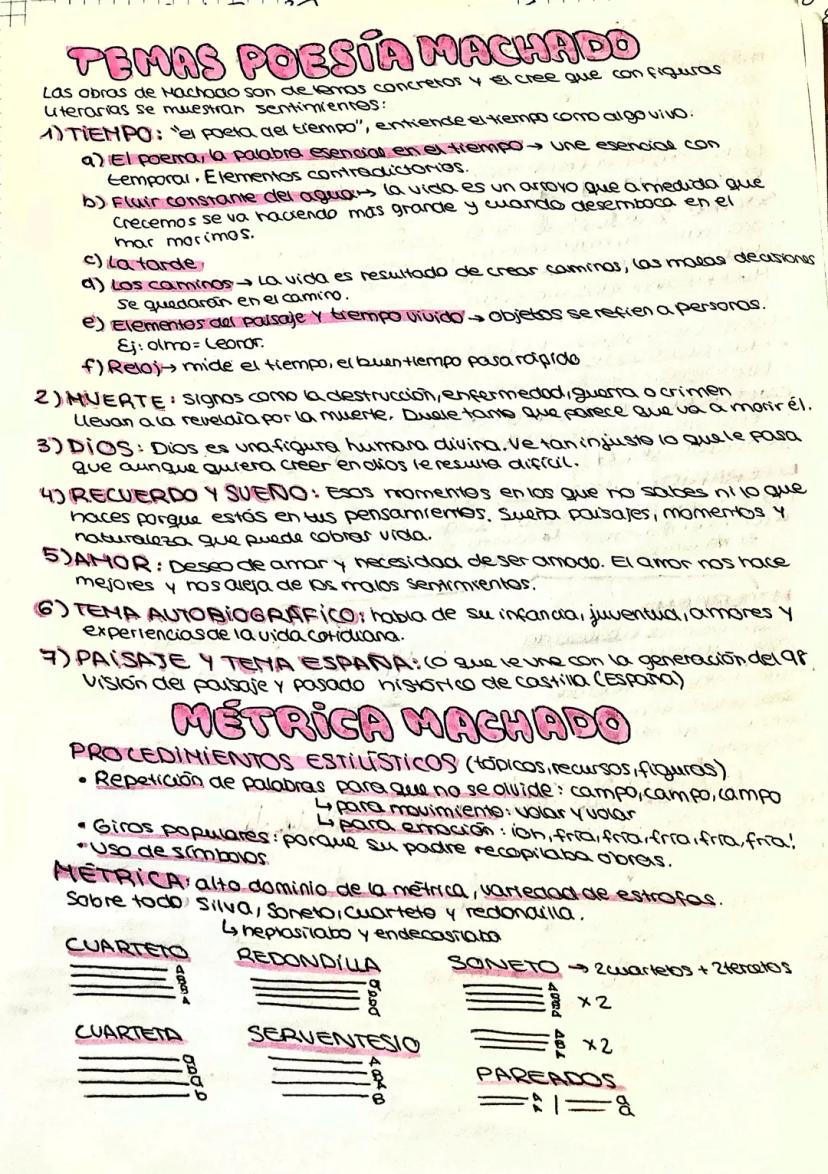 TEMAS POESÍA MACHADO
Las obras de Machado son de temas concretos y él cree que con figuras
literarias se muestran sentimientos:
1) TIEMPO: "el poeta del tiempo", entiende el tiempo como algo vivo.
a) El poema, la palabra esencial en el tiempo → une esencial con
temporal. Elementos contradictorios.
b) Fluir constante del agua → la vida es un arroyo que a medida que
crecemos se va haciendo más grande y cuando desemboca en el
mar morimos.
c) La tarde
d) Los caminos → La vida es resultado de crear caminos, las malas decisiones
se quedarán en el camino.
e) Elementos del paisaje y tiempo vivido → objetos se refien a personas.
Ej: olmo = Leonor.
f) Reloj → mide el tiempo, el buen tiempo pasa rápido
2) MUERTE: signos como la destrucción, enfermedad, guerra o crimen
llevan a la reveldía por la muerte. Duele tanto que parece que va a morir él.
3) DIOS: Dios es una figura humana divina. Ve tan injusto lo que le pasa
que aunque quiera creer en dios le resulta difícil.
4) RECUERDO Y SUEÑO: Esos momentos en los que no sabes ni lo que
haces porque estás en tus pensamientos. Sueña paisajes, momentos y
naturaleza que puede cobrar vida.
5) AMOR: Deseo de amar y necesidad de ser amado. El amor nos hace
mejores y nos aleja de los malos sentimientos.
6) TEMA AUTOBIOGRÁFICO: habla de su infancia, juventud, amores y
experiencias de la vida cotidiana.
7) PAISAJE Y TEMA ESPAÑA: lo que le une con la generación del 98
visión del paisaje y pasado histórico de Castilla (España)
MÉTRICA MACHADO
PROCEDIMIENTOS ESTILÍSTICOS (tópicos, recursos, figuras)
• Repetición de palabras para que no se olvide: campo, campo, campo
↳ para movimiento: volar y volar
↳ para emoción: ¡oh, fría, fría, fría, fría, fría!
• Giros populares: porque su padre recopilaba obras.
• Uso de símbolos
MÉTRICA: alto dominio de la métrica, variedad de estrofas.
Sobre todo silva, soneto, cuarteto y redondilla.
↳ heptasílabo y endecasílabo
CUARTETO REDONDILLA SONETO → 2 cuartetos + 2 tercetos
A a A
B b B
B b B x2
A a A
A
B x2
A
CUARTETA SERVENTESIO
a A
b B
a A
b B
PAREADOS
A | a
A a